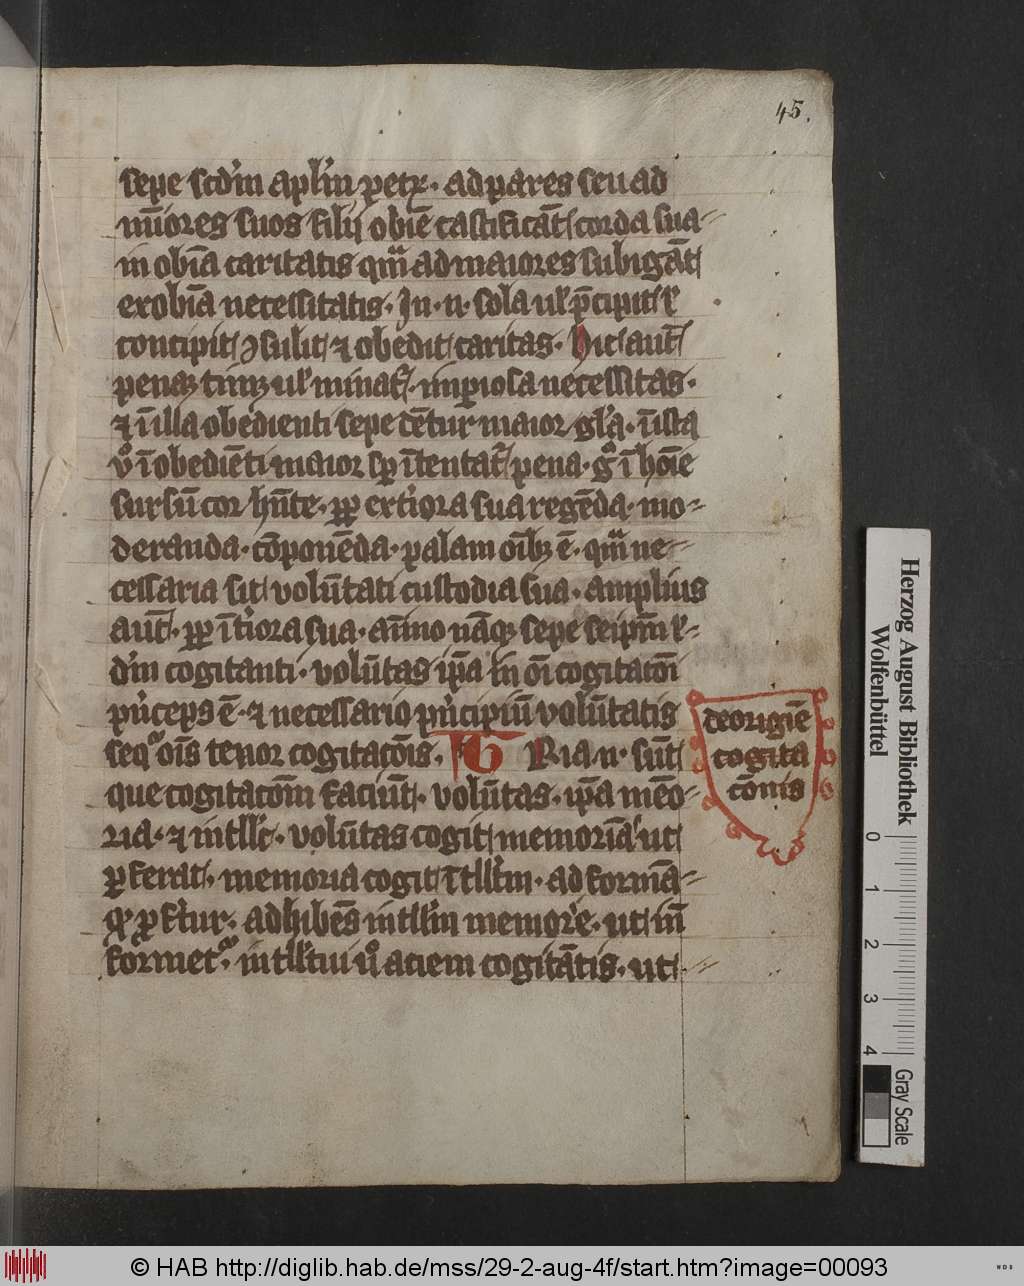 45.
sepe scd'm apl'm petr̄. ad pares seu ad
mīores suos filij obiē castificāt corda sua
in obīa caritatis qm̄ ad maiores subigāt
ex obīa necessitatis. In .n. sola ul' p̄cipit
concipit ɔsulit ⁊ obedit caritas. Hic aut̄
penaꝫ
necessitas.
⁊ ī illa obedienti sepe dētur maior gl'a. ī ista
v̊ īobediēti maior sꝑ ītentat̄ pena. gͦ ī hoīe
sursū cor hn̄te. ꝓp exti'ora sua regēda. mo-
deranda. cōponēda. palam oībꝫ ē. qm̄ ne-
cessaria sit volūtati custodia sua. amplius
aut̄. ꝓp īti'ora sua. aīmo nāqꝫ sepe seipm̄
d'm cogitanti. volūtas ip̄a in oī cogitacōī
pri'nceps ē. ⁊ necessario pri'ncipiū volūtatis
seqͬ oīs tenor cogitacōis. Tria .n. sūt
que cogitacōm faciūt. volūtas. ip̄a mēo-
ria. ⁊ intll'c̄. volūtas cogit memoriā ut
ꝓferat. memoria cogit ītll'm. ad formā-
qͦ ꝓfi'tur. adhibēs intll'm memor'e. ut īn
formet.ͬ intll'tui v̊ aciem cogitātis. ut
de origiē
cogita
cōnis
Herzog August Bibliothek
Wolfenbüttel
0
1
2
3
4
Gray Scale
© HAB http://diglib.hab.de/mss/29-2-aug-4f/start.htm?image=00093
WDB